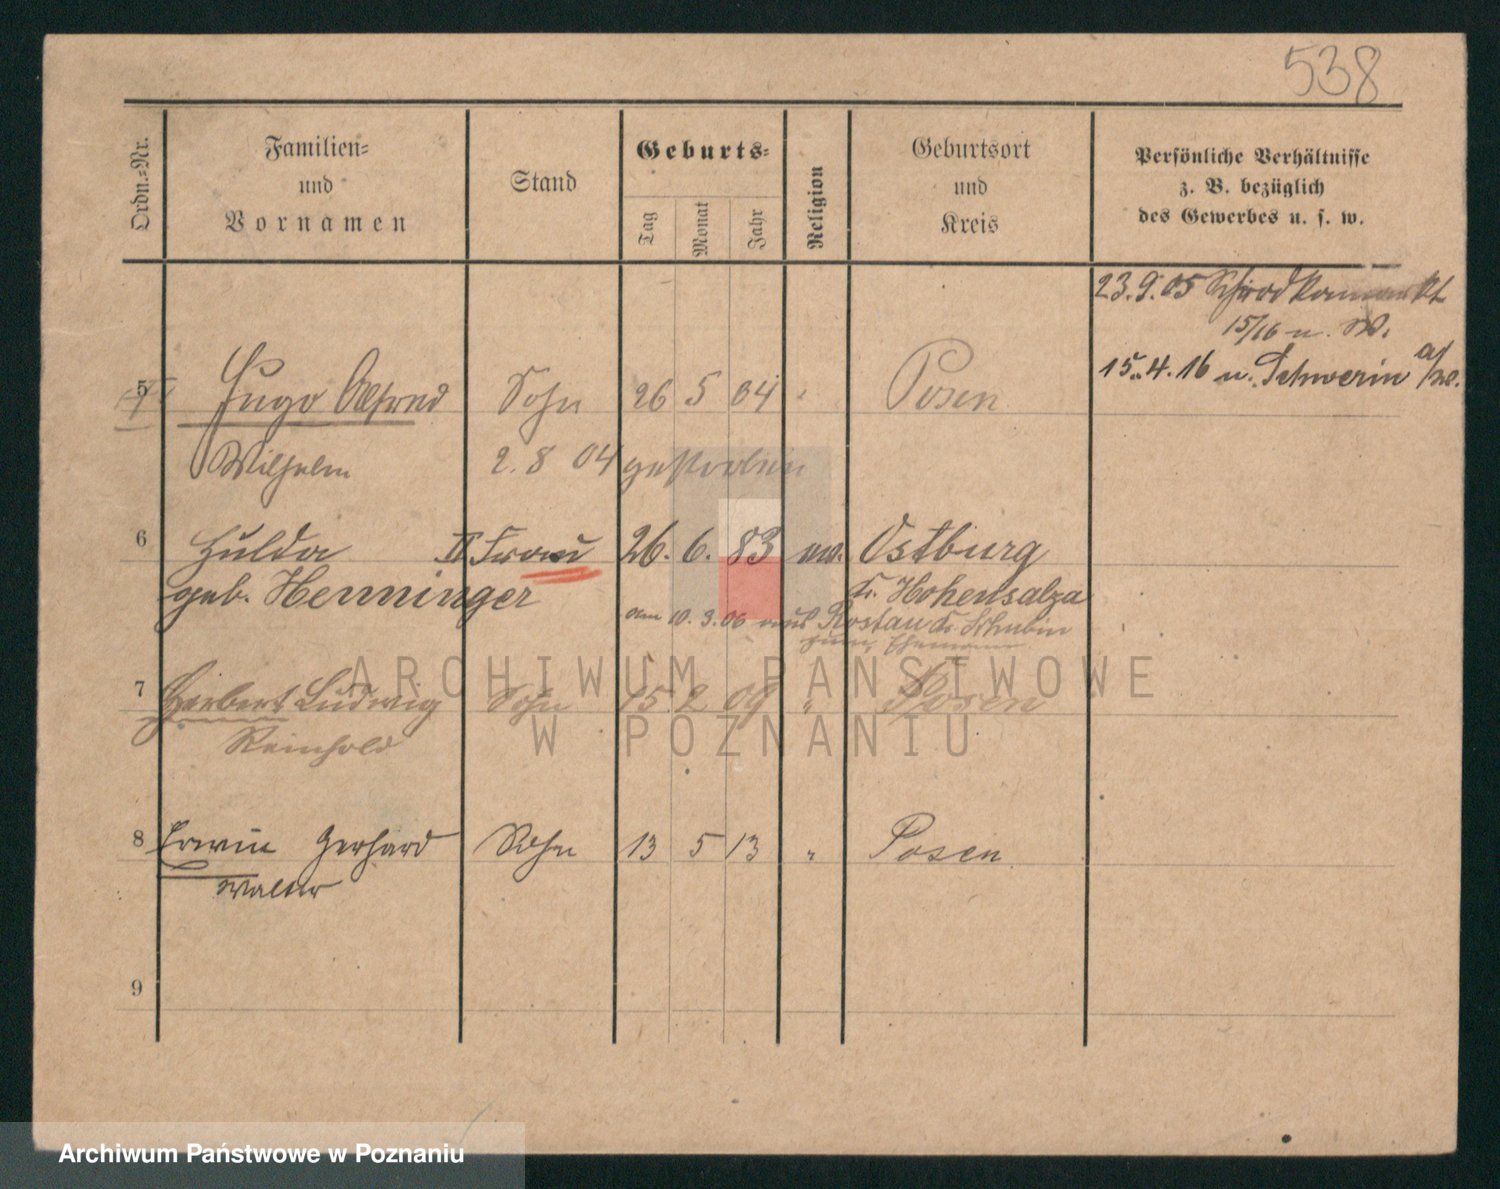 538
Ordn.-Nr.
Familien-
und
Vornamen
Stand
Geburts-
Tag
Monat
Jahr
Religion
Geburtsort
und
Kreis
Persönliche Verhältnisse
z. B. bezüglich
des Gewerbes u. s. w.
23.9.05
15/16 n. W.
15.4.16 n. Schwerin a/W.
5 Hugo Alfred Sohn 26 5 04 " Posen
Wilhelm 2.8 04 gestorben
6 Hulda II Frau 26. 6. 83 ev. Ostburg
geb. Henninger Kr. Hohensalza
am 10.3.06 aus Rostau Kr. Schubin
zum Ehemann
7 Herbert Ludwig Sohn 15 2 09 " Posen
Reinhold
8 Erwin Gerhard Sohn 13 5 13 " Posen
Walter
9
ARCHIWUM PAŃSTWOWE
W POZNANIU
Archiwum Państwowe w Poznaniu